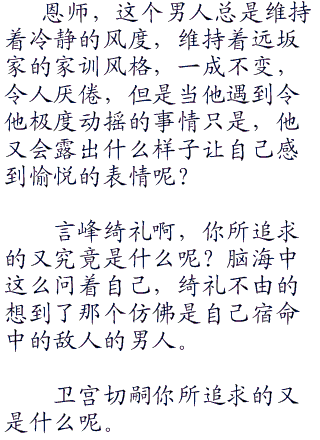 恩师，这个男人总是维持
着冷静的风度，维持着远坂
家的家训风格，一成不变，
令人厌倦，但是当他遇到令
他极度动摇的事情只是，他
又会露出什么样子让自己感
到愉悦的表情呢？
言峰绮礼啊，你所追求
的又究竟是什么呢？脑海中
这么问着自己，绮礼不由的
想到了那个仿佛是自己宿命
中的敌人的男人。
卫宫切嗣你所追求的又
是什么呢。